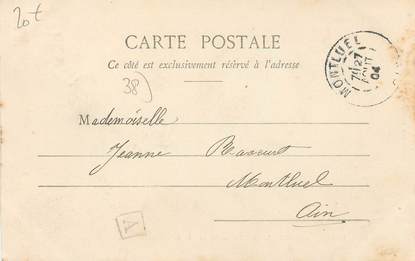 20t
CARTE POSTALE
Ce côté est exclusivement réservé à l'adresse
38)
MONTLUEL
27
AOUT
04
Mademoiselle
Jeanne
Montluel
Ain
A